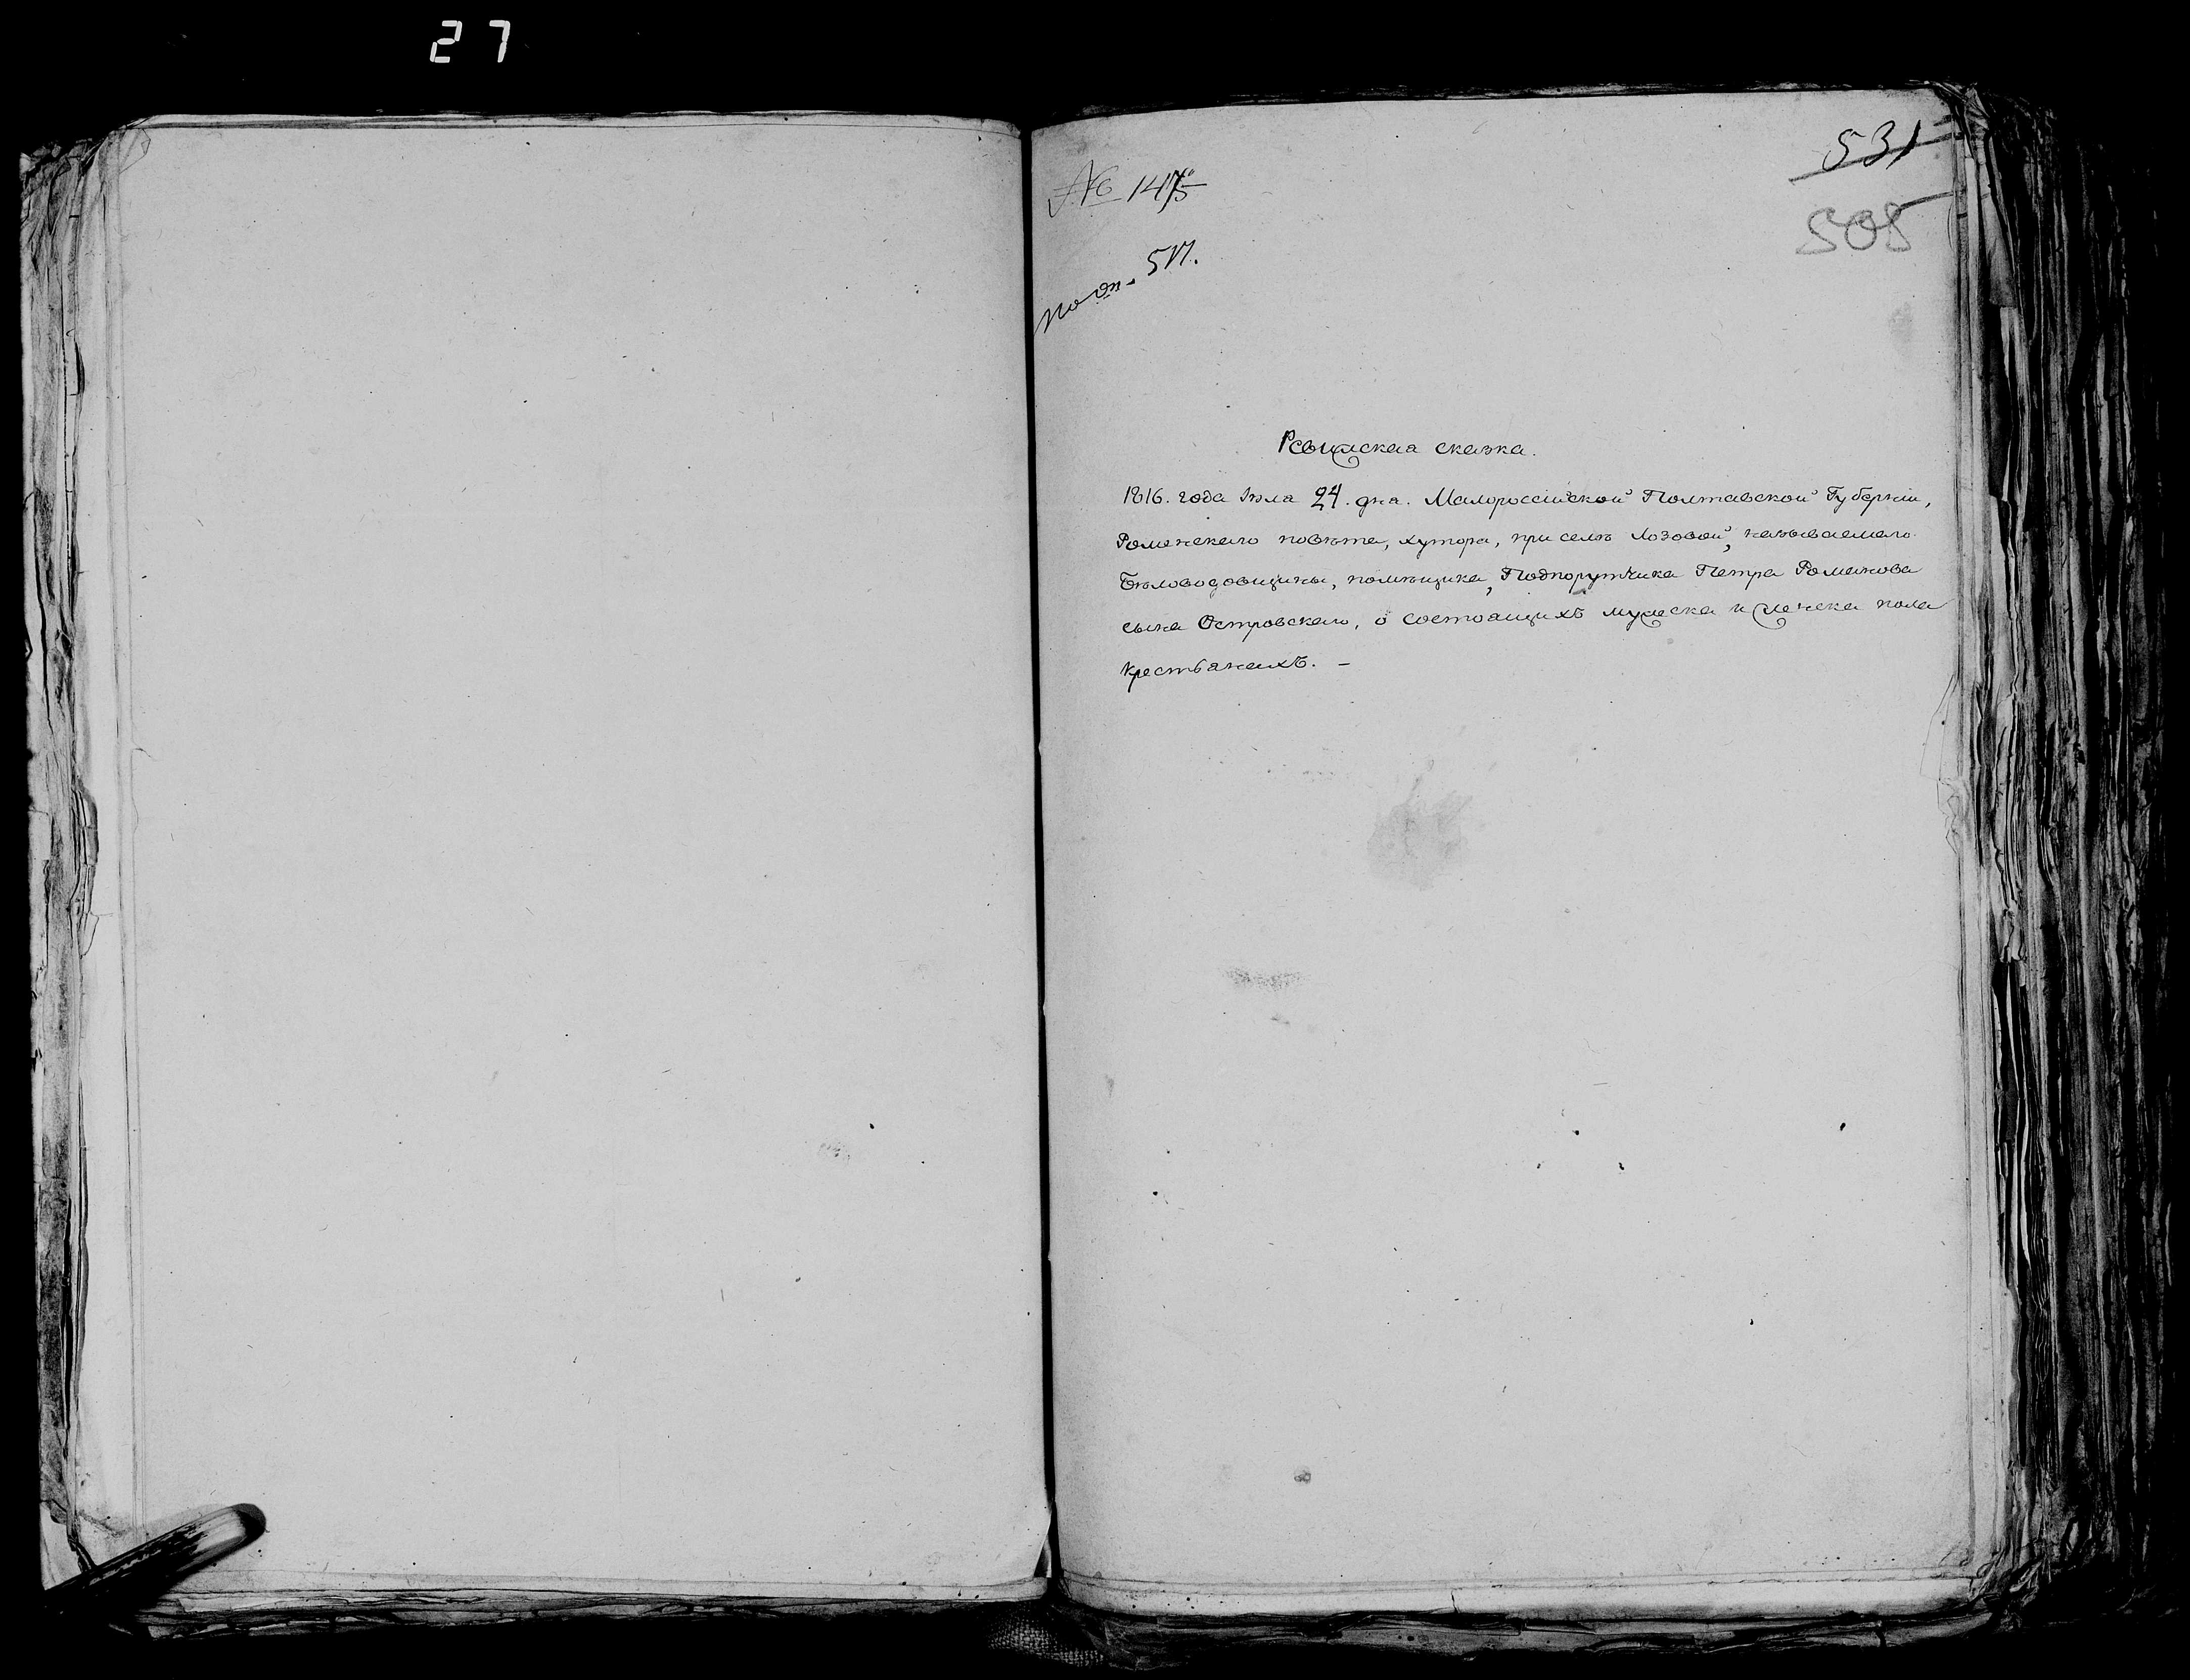 27
531
№ 1475
508
по оп. 517.
Ревижская сказка.
1816. года Іюла 24. дна. Малороссійской Полтавской Губерніи,
Роменскаго повѣта, хутора, при селѣ Лозовой, называемаго
Бѣловодовщины, помѣщика, Подпорутчика Петра Романова
сына Островскаго, о состоащихъ мужеска и женска пола
крестьанахъ. –